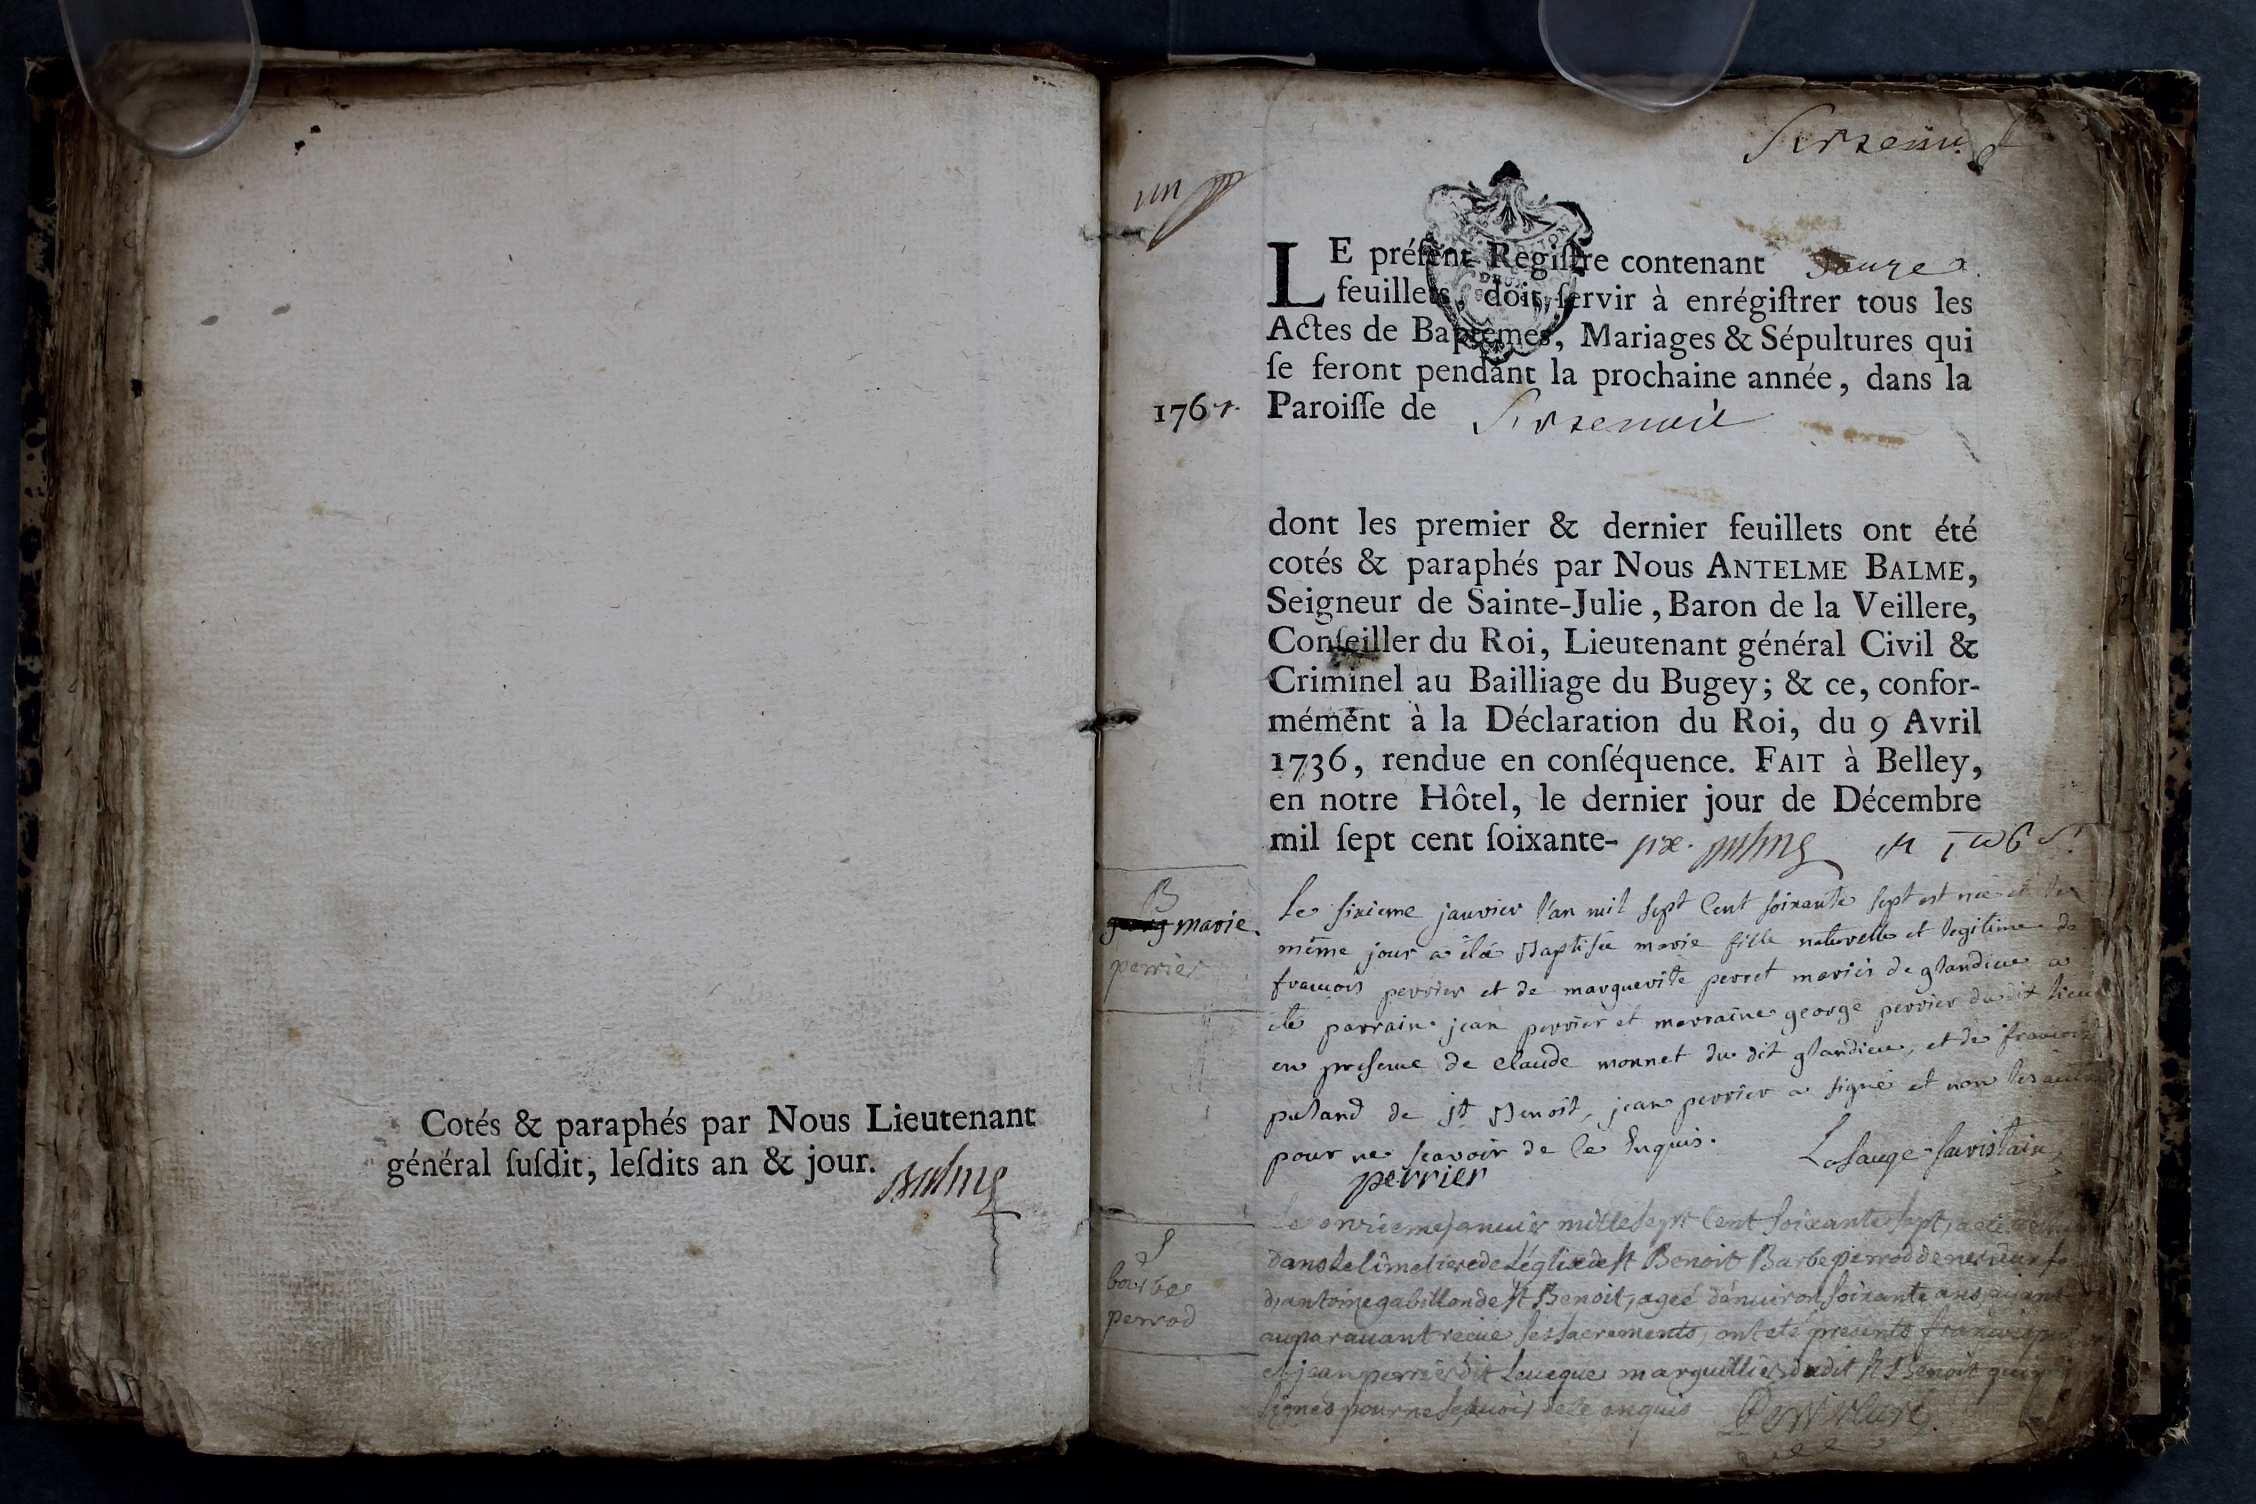 Cotés & paraphés par Nous Lieutenant
général ſuſdit, leſdits an & jour.
Balme
un
LE préſent Regiſtre contenant douze
feuillets, doit ſervir à enrégiſtrer tous les
Actes de Baptêmes, Mariages & Sépultures qui
ſe feront pendant la prochaine année, dans la
1767. Paroiſſe de
dont les premier & dernier feuillets ont été
cotés & paraphés par Nous ANTELME BALME,
Seigneur de Sainte-Julie, Baron de la Veillere,
Conſeiller du Roi, Lieutenant général Civil &
Criminel au Bailliage du Bugey; & ce, confor-
mément à la Déclaration du Roi, du 9 Avril
1736, rendue en conſéquence. FAIT à Belley,
en notre Hôtel, le dernier jour de Décembre
mil ſept cent ſoixante- six. Balme
B
marie
perrier
Le sixieme janvier l'an mil sept Cent soixante sept est née et le
même jour a été Baptisée marie fille naturelle et legitime de
francois perrier et de marguerite perret mariés de glandieu a
été parrain jean perrier et marraine george perrier du dit lieu
en presence de claude monnet du dit glandieu, et de francois
de st Benoit, jean perrier a signé et non les autres
pour ne scavoir de ce Enquis.
perrier
S
barbe
perrod
Le onzieme janvier mille sept Cent soixante sept, a été
dans le cimetiere de L'église de st Benoit Barbe perrod
d'antoine gabillon de st Benoit, ageé d'enuiron soixante ans, aiant
auparauant recue ses sacrements, ont eté presents francois
et jean perrier dit Leueque marguillier dudit st Benoit qui
signés pour ne scauoir de ce enquis